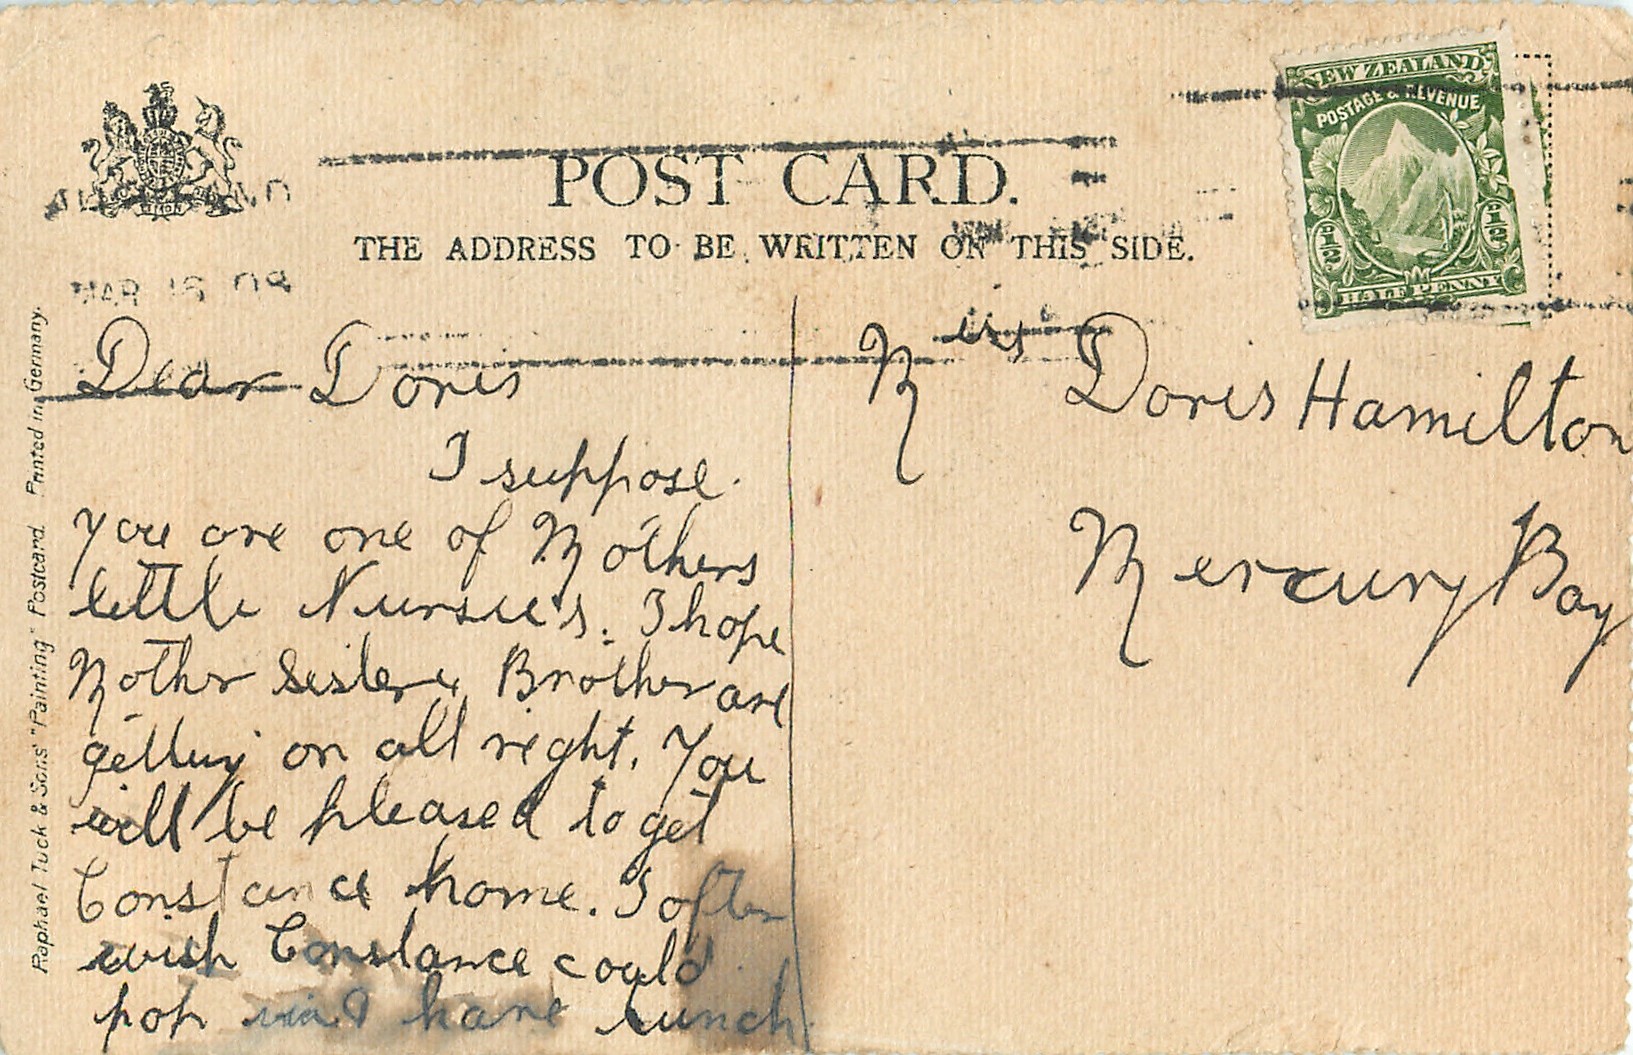 NEW ZEALAND
POSTAGE & REVENUE
1/2 1/2
HALF PENNY
POST CARD.
THE ADDRESS TO BE WRITTEN ON THIS SIDE.
MAR 16 09
Raphael Tuck & Sons' "Painting" Postcard. Printed in Germany.
Dear Doris
I suppose
you are one of Mothers
little Nursie's. I hope
Mother Sister & Brother are
getting on all right. You
will be pleased to get
Constance home. I often
wish Constance could
pop in & have lunch
Miss Doris Hamilton
Mercury Bay